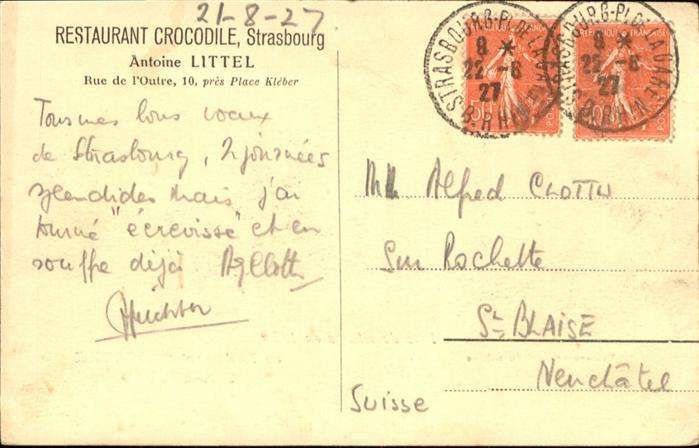 21-8-27
RESTAURANT CROCODILE, Strasbourg
Antoine LITTEL
Rue de l'Outre, 10, près Place Kléber
Tous mes bons voeux
de Strasbourg, 2 journées
splendides mais j'ai
tourné "écrevisse" et en
souffre déjà
STRASBOURG-PL. DE LA GARE
8 *
22 -8
27
BAS-RHIN
STRASBOURG-PL. DE LA GARE
8 *
22 -8
27
BAS-RHIN
Alfred CLOTTU
Sur Rochette
St BLAISE
Neuchâtel
Suisse